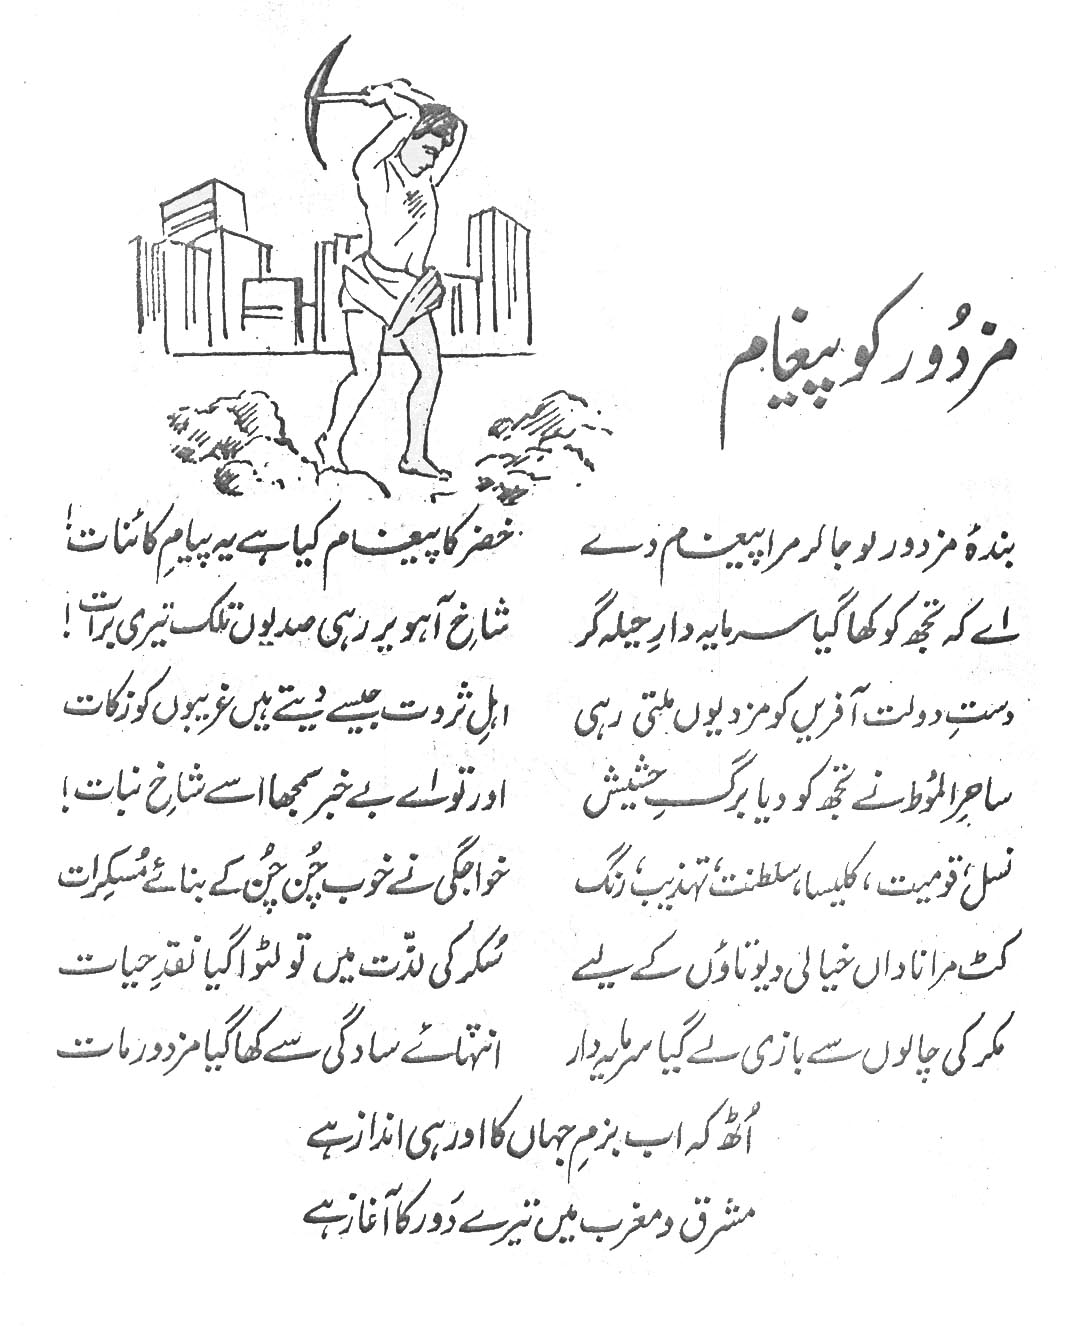 مزدُور کو پیغام
بندۂ مزدور کو جا کر مرا پیغام دے
خضر کا پیغام کیا ہے یہ پیامِ کائنات!
اے کہ تجھ کو کھا گیا سرمایہ دارِ حیلہ گر
شاخِ آہو پر رہی صدیوں تلک تیری برات!
دستِ دولت آفریں کو مزد یوں ملتی رہی
اہلِ ثروت جیسے دیتے ہیں غریبوں کو زکات
ساحرِ الموُط نے تجھ کو دیا برگِ حشیش
اور تو اے بے خبر سمجھا اسے شاخِ نبات!
نسل، قومیت، کلیسا، سلطنت، تہذیب، رنگ
خواجگی نے خوب چُن چُن کے بنائے مُسکرات
کٹ مرا ناداں خیالی دیوتاؤں کے لیے
سُکر کی لذّت میں تو لٹوا گیا نقدِ حیات
مکر کی چالوں سے بازی لے گیا سرمایہ دار
انتہائے سادگی سے کھا گیا مزدور مات
اُٹھ کہ اب بزمِ جہاں کا اور ہی انداز ہے
مشرق و مغرب میں تیرے دَور کا آغاز ہے